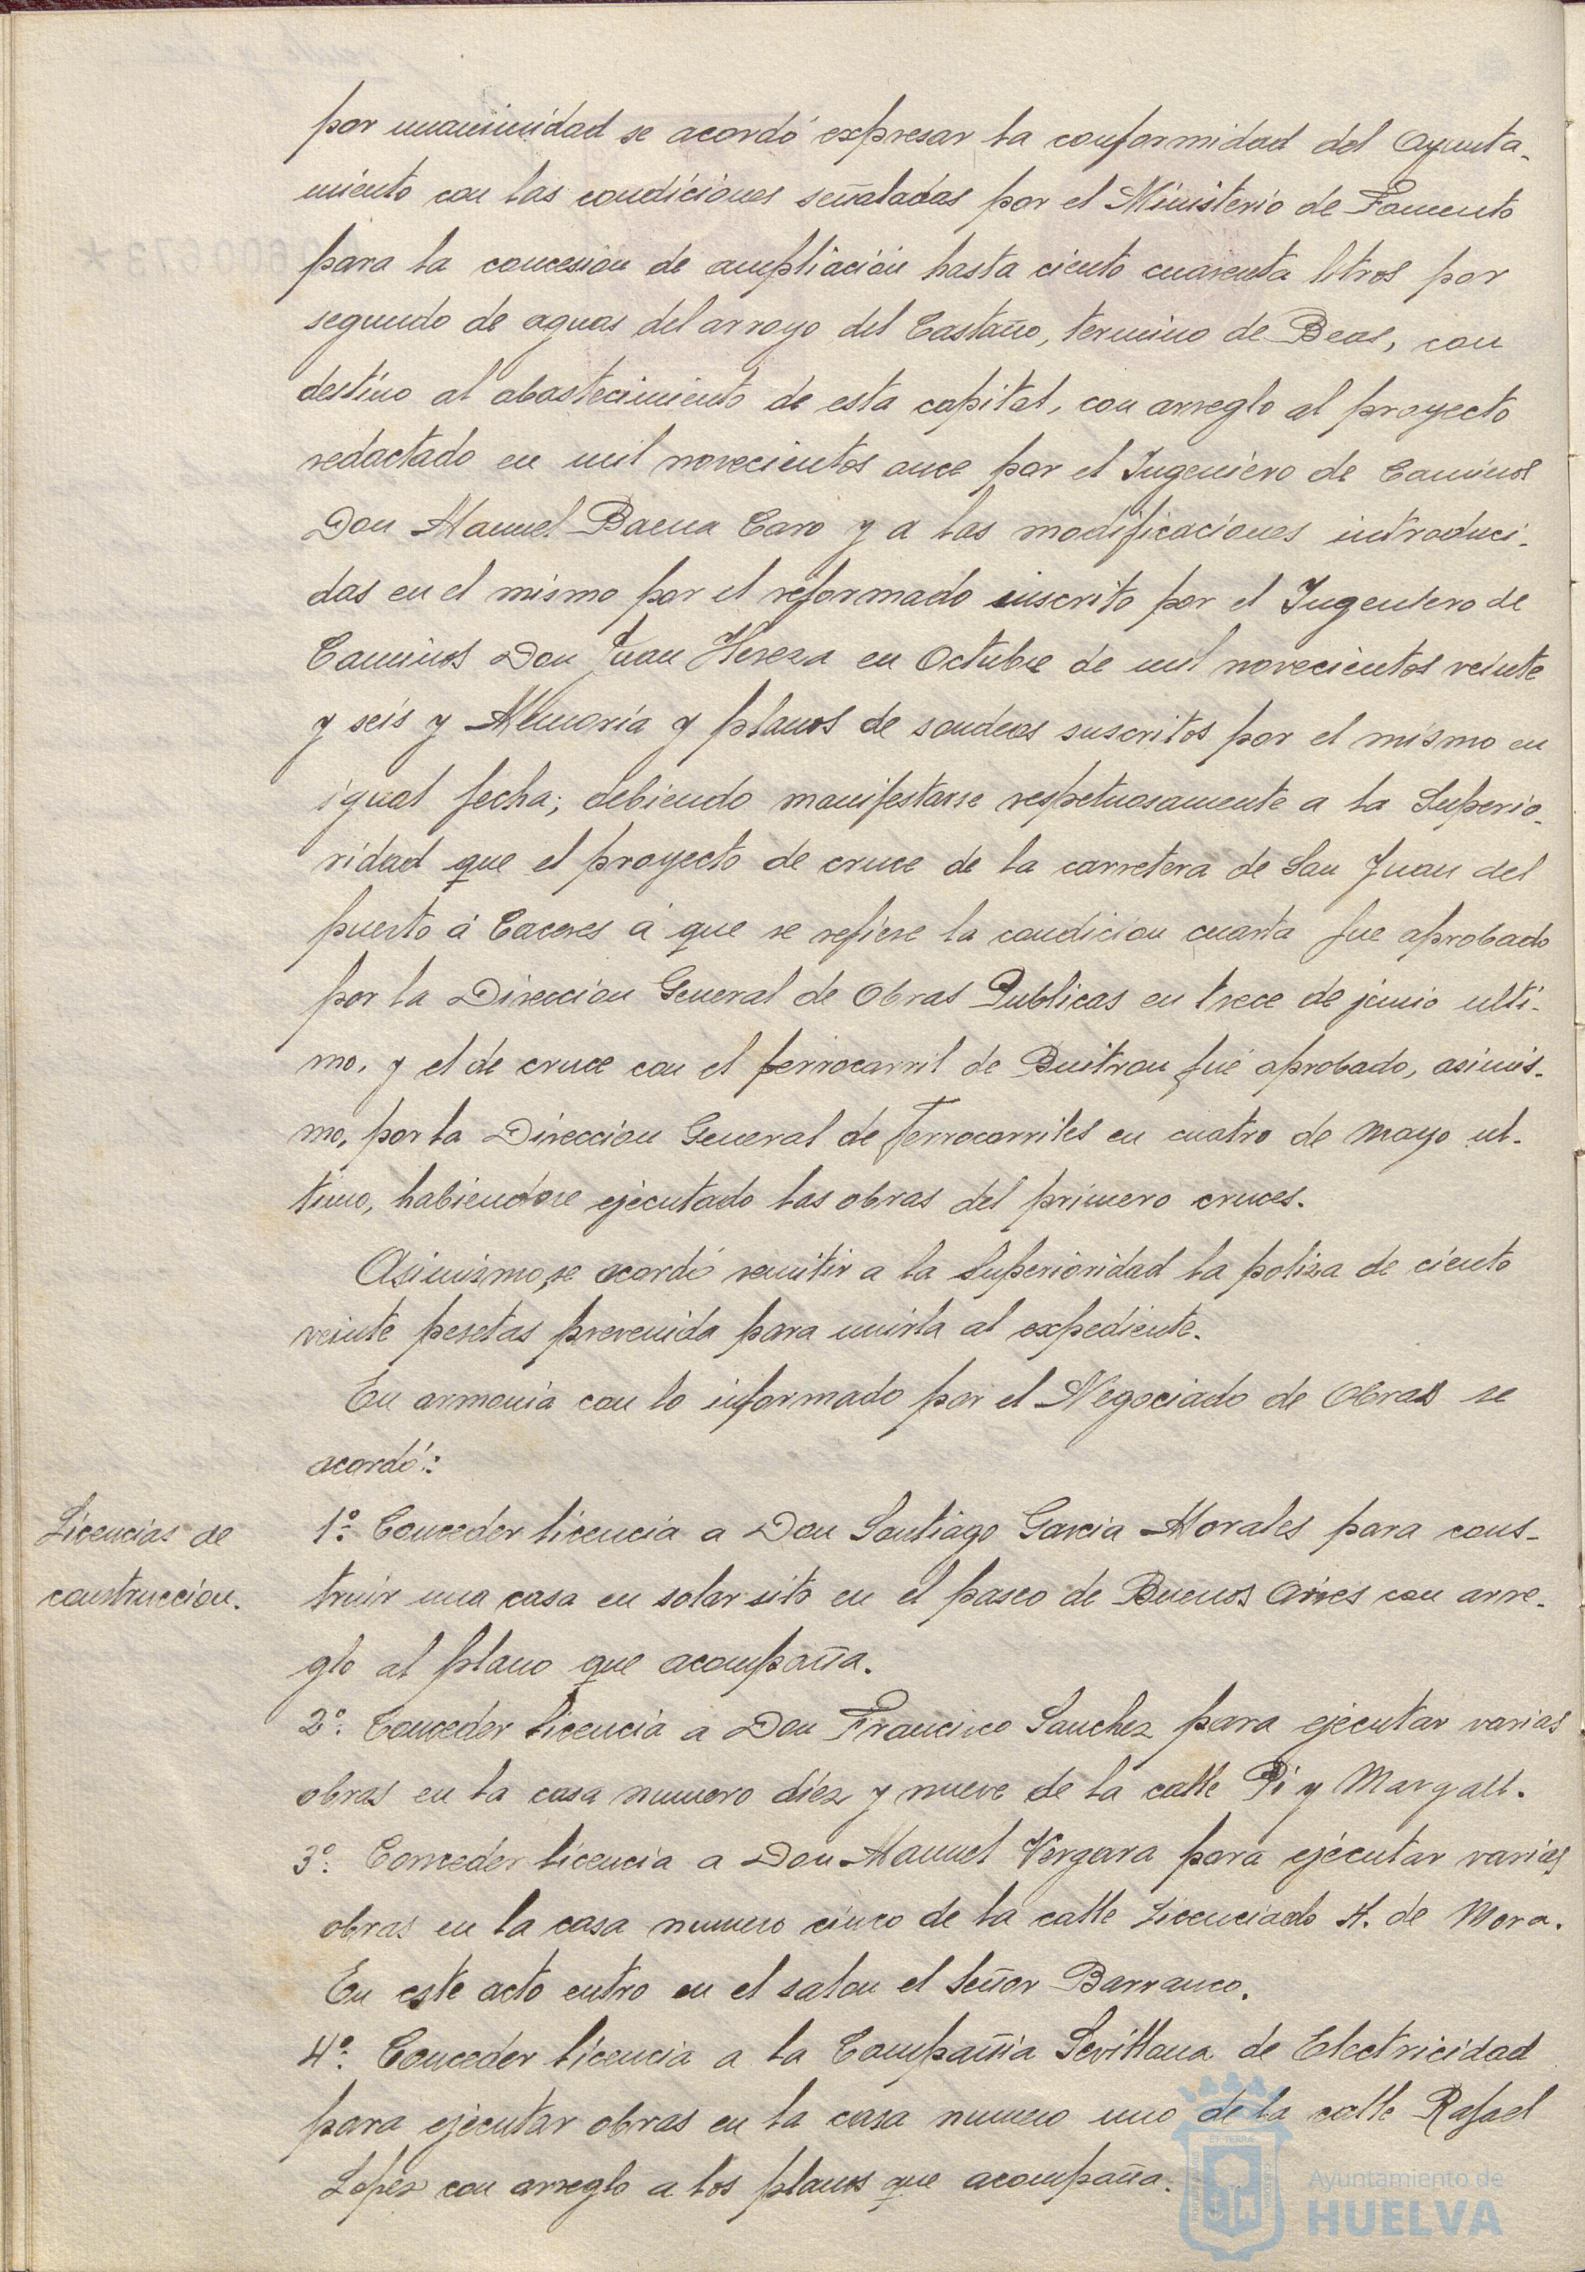 por unanimidad se acordó expresar la conformidad del Ayunta-
miento con las condiciones señaladas por el Ministerio de Fomento
para la concesión de ampliación hasta ciento cuarenta litros por
segundo de aguas del arroyo del Castaño, termino de Beas, con
destino al abastecimiento de esta capital, con arreglo al proyecto
redactado en mil novecientos once por el Ingeniero de Caminos
Don Manuel Baena Caro y a las modificaciones introduci-
das en el mismo por el reformado suscrito por el Ingeniero de
Caminos Don Juan Hereza en Octubre de mil novecientos veinte
y seis y Memoria y planos de sondeos suscritos por el mismo en
igual fecha; debiendo manifestarse respetuosamente a la Superio-
ridad que el proyecto de cruce de la carretera de San Juan del
puerto á Caceres á que se refiere la condicion cuarta fue aprobado
por la Direccion General de Obras Publicas en trece de junio ulti-
mo, y el de cruce con el ferrocarril de Buitron fué aprobado, asimis-
mo, por la Direccion General de Ferrocarriles en cuatro de Mayo ul-
timo, habiendose ejecutado las obras del primero cruces.
Asimismo, se acordó remitir a la Superioridad la poliza de ciento
veinte pesetas prevenida para unirla al expediente.
En armonia con lo informado por el Negociado de Obras se
acordó:
Licencias de
construccion.
1º. Conceder licencia a Don Santiago Garcia Morales para cons-
truir una casa en solar sito en el paseo de Buenos Aires con arre-
glo al plano que acompaña.
2º. Conceder licencia a Don Francisco Sanchez para ejecutar varias
obras en la casa numero diez y nueve de la calle Pi y Margall.
3º. Conceder licencia a Don Manuel Vergara para ejecutar varias
obras en la casa numero cinco de la calle Licenciado M. de Mora.
En este acto entro en el salon el Señor Barranco.
4º. Conceder licencia a la Compañia Sevillana de Electricidad
para ejecutar obras en la casa numero uno de la calle Rafael
Lopez con arreglo a los planos que acompaña.
Ayuntamiento de
HUELVA